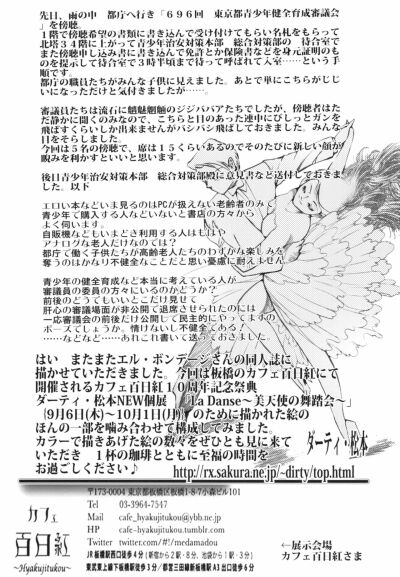 先日、雨の中 都庁へ行き「696回 東京都青少年健全育成審議会」
を傍聴。
1階で傍聴希望の書類に書き込んで受け付けてもらい名札をもらって
北塔34階に上がって青少年治安対策本部 総合対策部の 待合室で
また傍聴申し込み書に書き込んで免許とか保険書などを身元証明のも
のを提示して待合室で3時半頃まで待って呼ばれて入室……という手
順です。
都庁の職員たちがみんな子供に見えました。あとで単にこちらがじじ
いになっただけと気付きましたが……。
審議員たちは流石に魑魅魍魎のジジババアたちでしたが、傍聴者はた
だ静かに聞くのみなので、こちらと目のあった連中にびしっとガンを
飛ばすくらいしか出来ませんがバシバシ飛ばしておきました。みんな
目をそらしました。
今回は5名の傍聴で、席は15くらいあるのでそのたびに新しい顔が
睨みを利かすといいと思います。
後日青少年治安対策本部 総合対策部殿に意見書など送付しておきま
した。以下
エロい本などいま見るのはPCが扱えない老齢者のみで
青少年で購入する人などいないと書店の方々から
よく伺います。
自販機などもいまどき利用する人はもはや
アナログな老人だけなのでは?
都庁で働く子供たちが高齢老人たちのわずかな楽しみを
奪うのはかなり不健全なことだと思い憂慮に耐えません。
青少年の健全育成など本当に考えている人が
審議員の委員の方々にいるのかどうか?
前後のどうでもいいとこだけ見せて
肝心の審議場面が非公開で退席させられたのには
一応審議会の前後だけ公開して民主的にやってますの
ポーズでしょうか。情けないし不健全である!
……などなど……あれこれ書いて送っておきました。
はい またまたエル・ボンデージさんの同人誌に
描かせていただきました。今回は板橋のカフェ百日紅にて
開催されるカフェ百日紅10周年記念祭典
ダーティ・松本NEW個展 「La Danse〜美天使の舞踏会〜」
(9月6日(木)〜10月1日(月))のために描かれた絵の
ほんの一部を噛み合わせて構成してみました。
カラーで描きあげた絵の数々をぜひとも見に来て
いただき 1杯の珈琲とともに至福の時間を
お過ごしください♪
ダーティ・松本
http://rx.sakura.ne.jp/~dirty/top.html
カフェ
百日紅
〜Hyakujitukou〜
〒173-0004 東京都板橋区板橋1-8-7小森ビル101
Tel 03-3964-7547
Mail cafe_hyakujitukou@ybb.ne.jp
HP cafe-hyakujitukou.tumblr.com
Twitter twitter.com/#!/medamadou
JR板橋駅西口徒歩4分(新宿から2駅・8分、池袋から1駅・3分)
東武東上線下板橋駅徒歩3分/都営三田線新板橋駅A3出口徒歩6分
←展示会場
カフェ百日紅さま